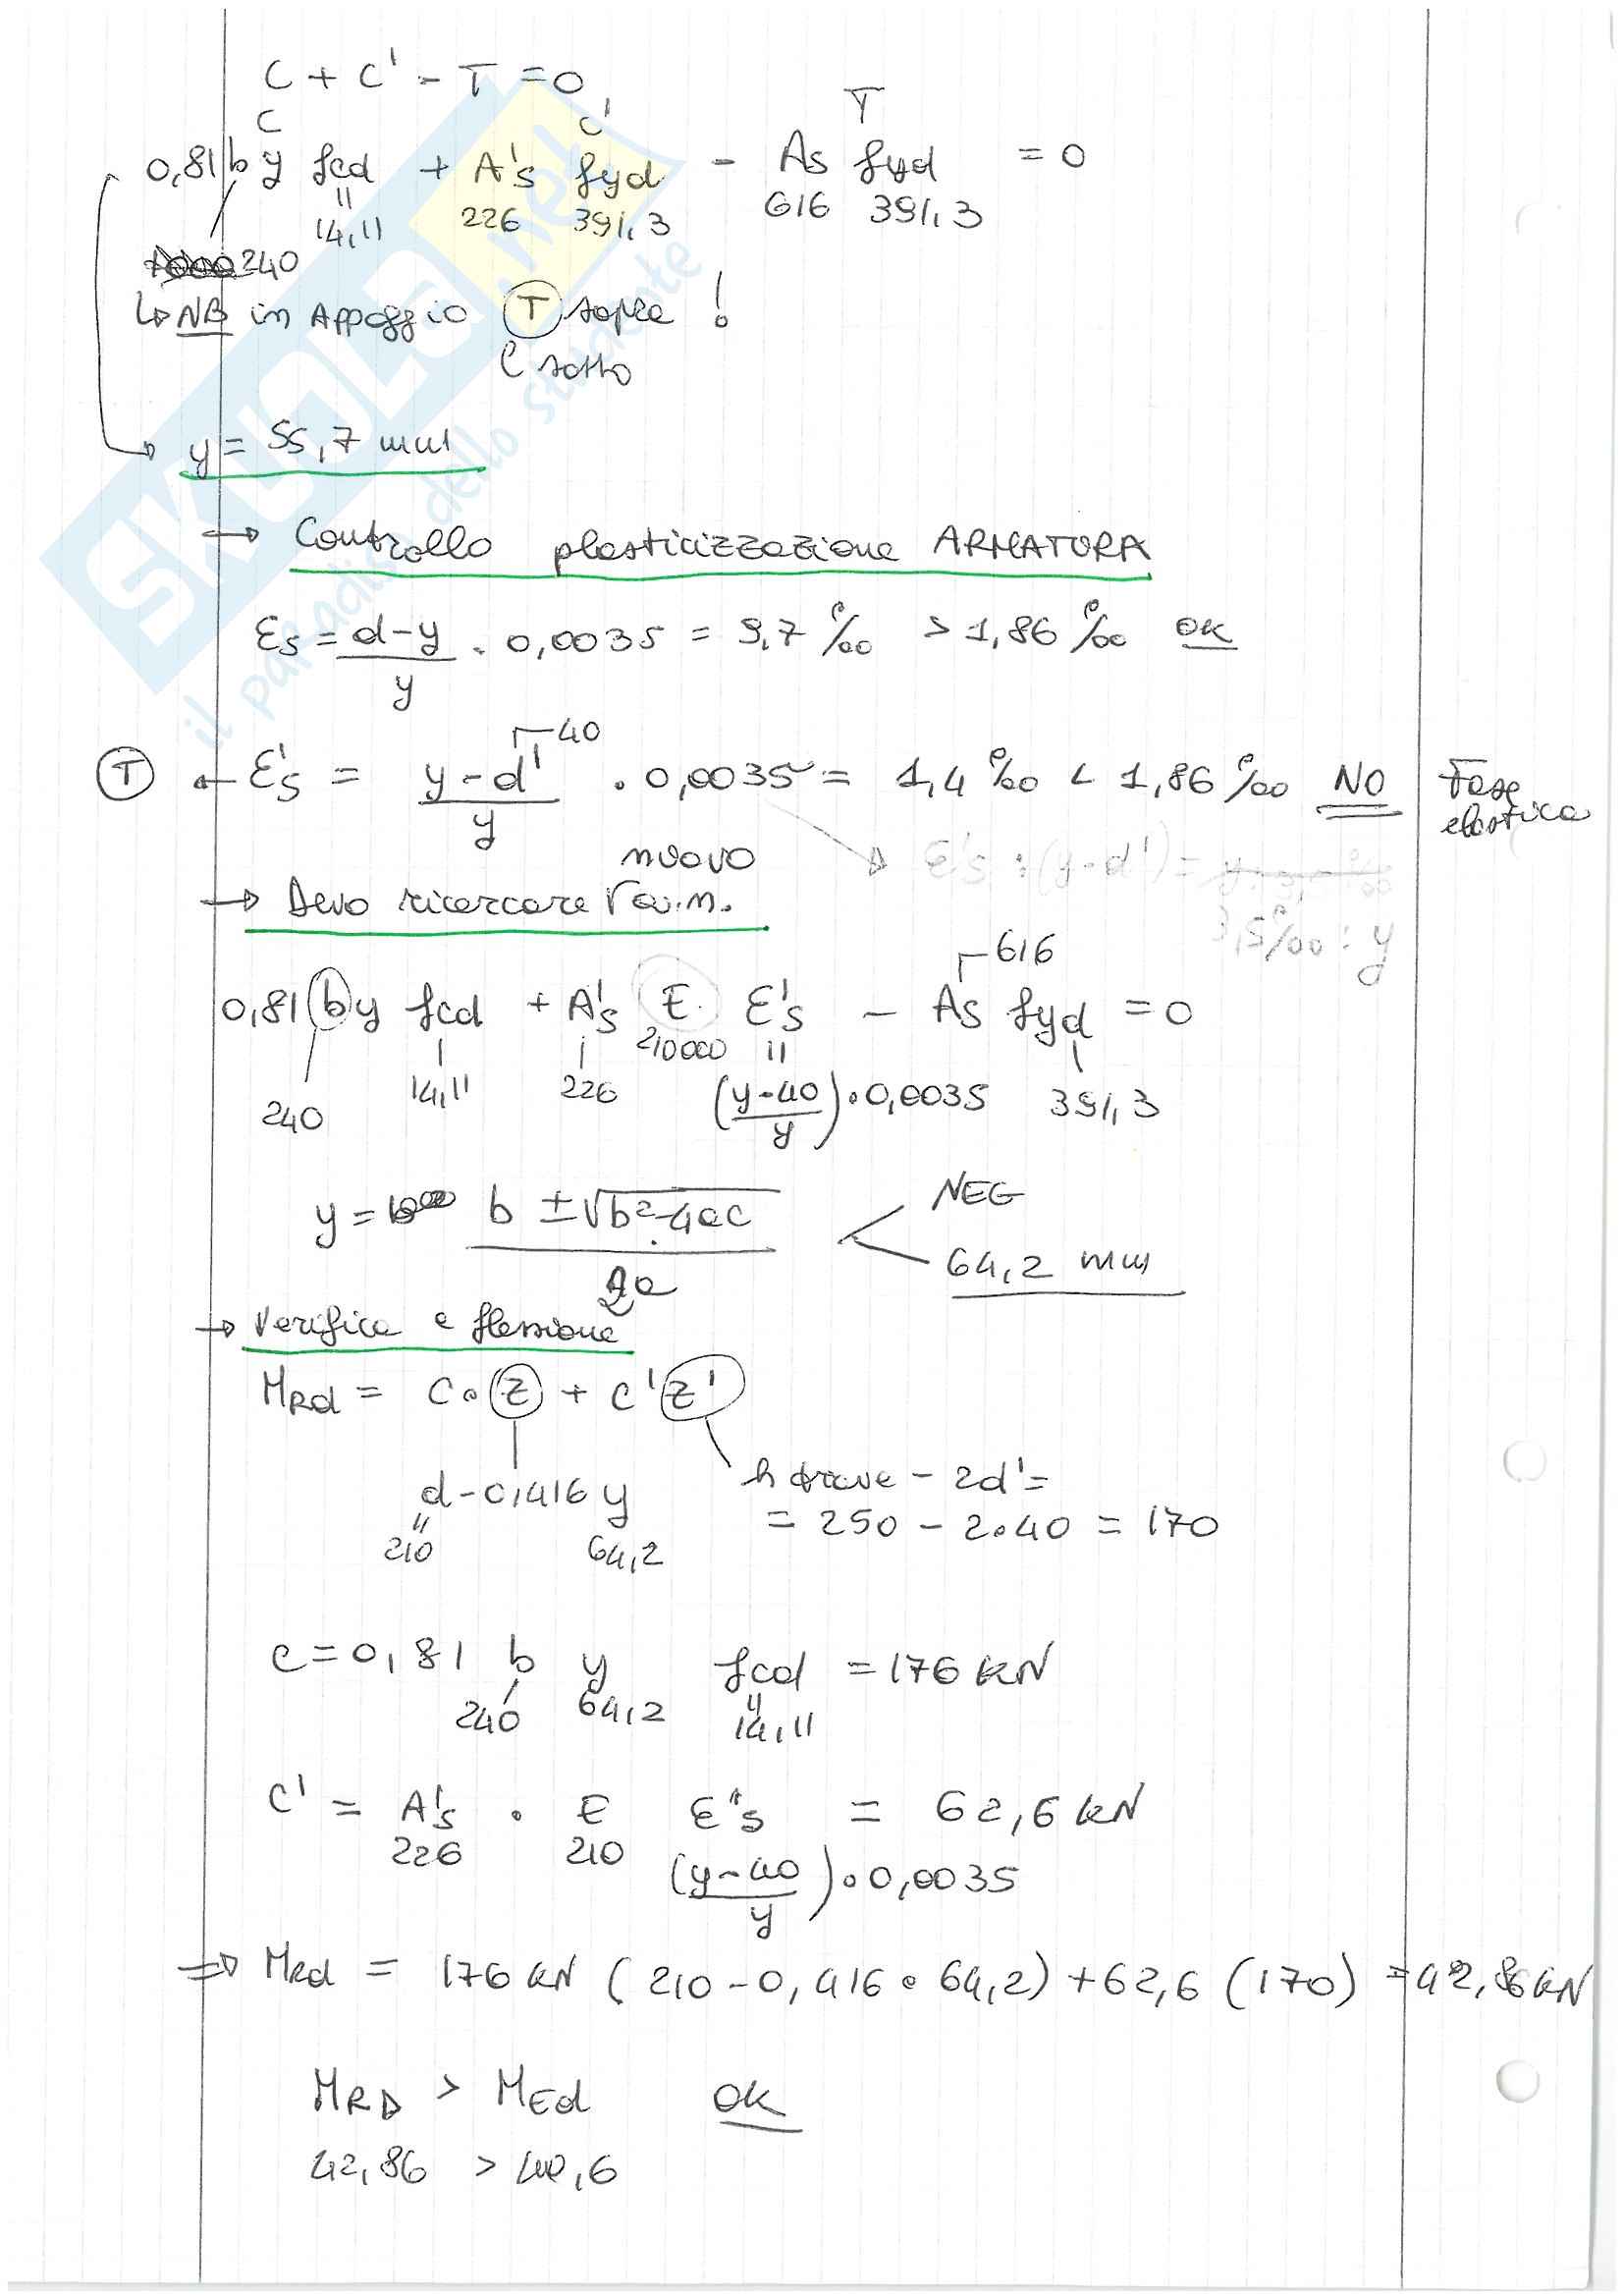 C + C' - T = 0
C C' T
0,81 b y fcd + A's fyd - As fyd = 0
14,11 226 391,3 616 391,3
240
↳ NB in Appoggio T sopra !
C sotto
→ y = 55,7 mm
→ Controllo plasticizzazione ARMATURA
Es = d-y / y · 0,0035 = 9,7 ‰ > 1,86 ‰ OK
40
T ← E's = y-d' / y · 0,0035 = 1,4 ‰ < 1,86 ‰ NO Fase elastica
E's : (y-d') =
3,5‰ : y
nuovo
→ Devo ricercare a.n.
616
0,81 b y fcd + A's E E's - As fyd = 0
240 14,11 226 210000 (y-40 / y) · 0,0035 391,3
y = b ± √b²-4ac / 2a
NEG
64,2 mm
→ Verifica a flessione
MRd = C · z + C' z'
d - 0,416 y
210 64,2
h trave - 2d' =
= 250 - 2·40 = 170
C = 0,81 b y fcd = 176 kN
240 64,2 14,11
C' = A's · E E's = 62,6 kN
226 210 (y-40 / y) · 0,0035
⇒ MRd = 176 kN (210 - 0,416 · 64,2) + 62,6 (170) = 42,86 kN
MRD > MEd OK
42,86 > 40,6
SKUOLA.net
il paradiso dello studente